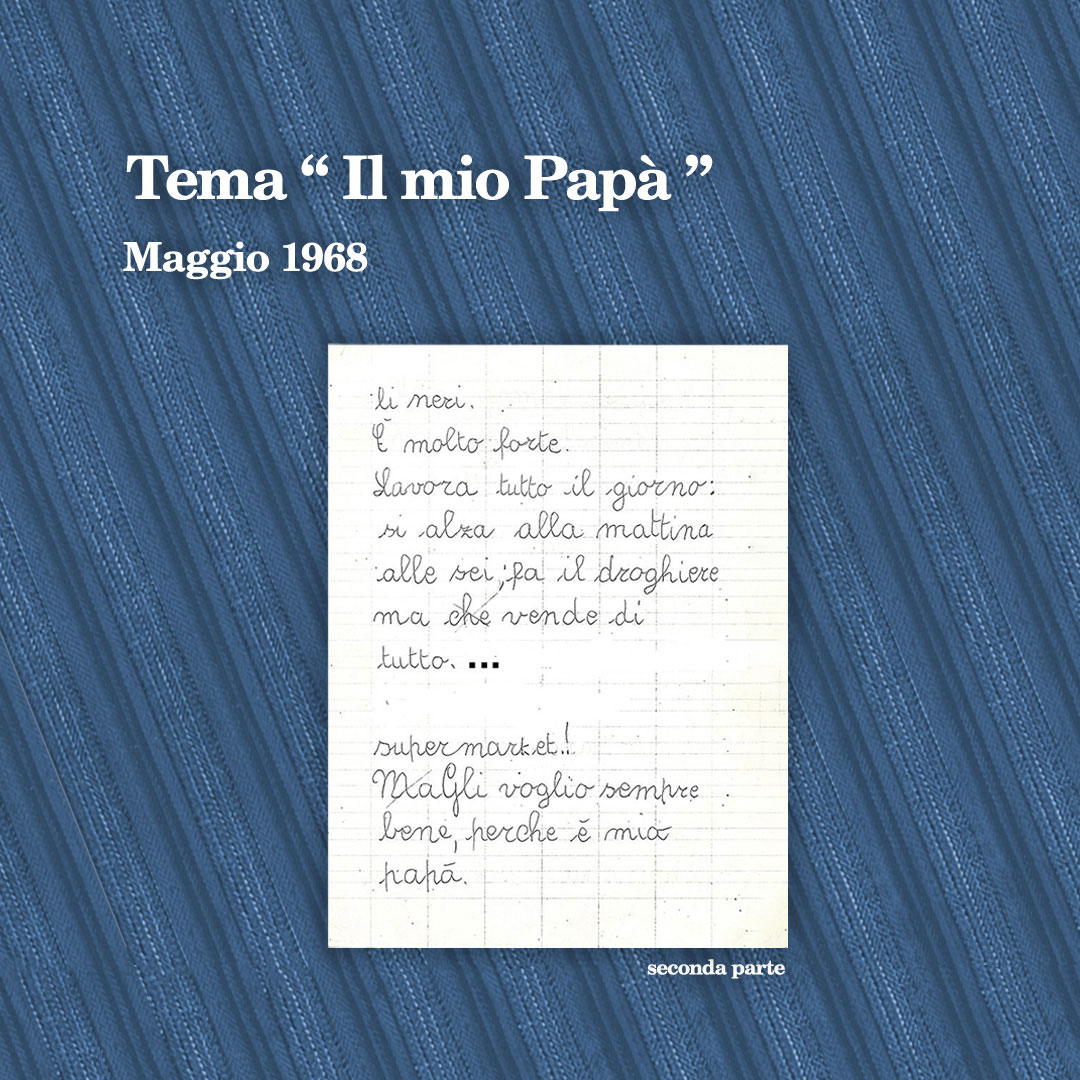 Tema “ Il mio Papà ”
Maggio 1968
li neri.
È molto forte.
Lavora tutto il giorno:
si alza alla mattina
alle sei, fa il droghiere
ma che vende di
tutto. ...
supermarket!
MaGli voglio sempre
bene, perche é mio
papá.
seconda parte